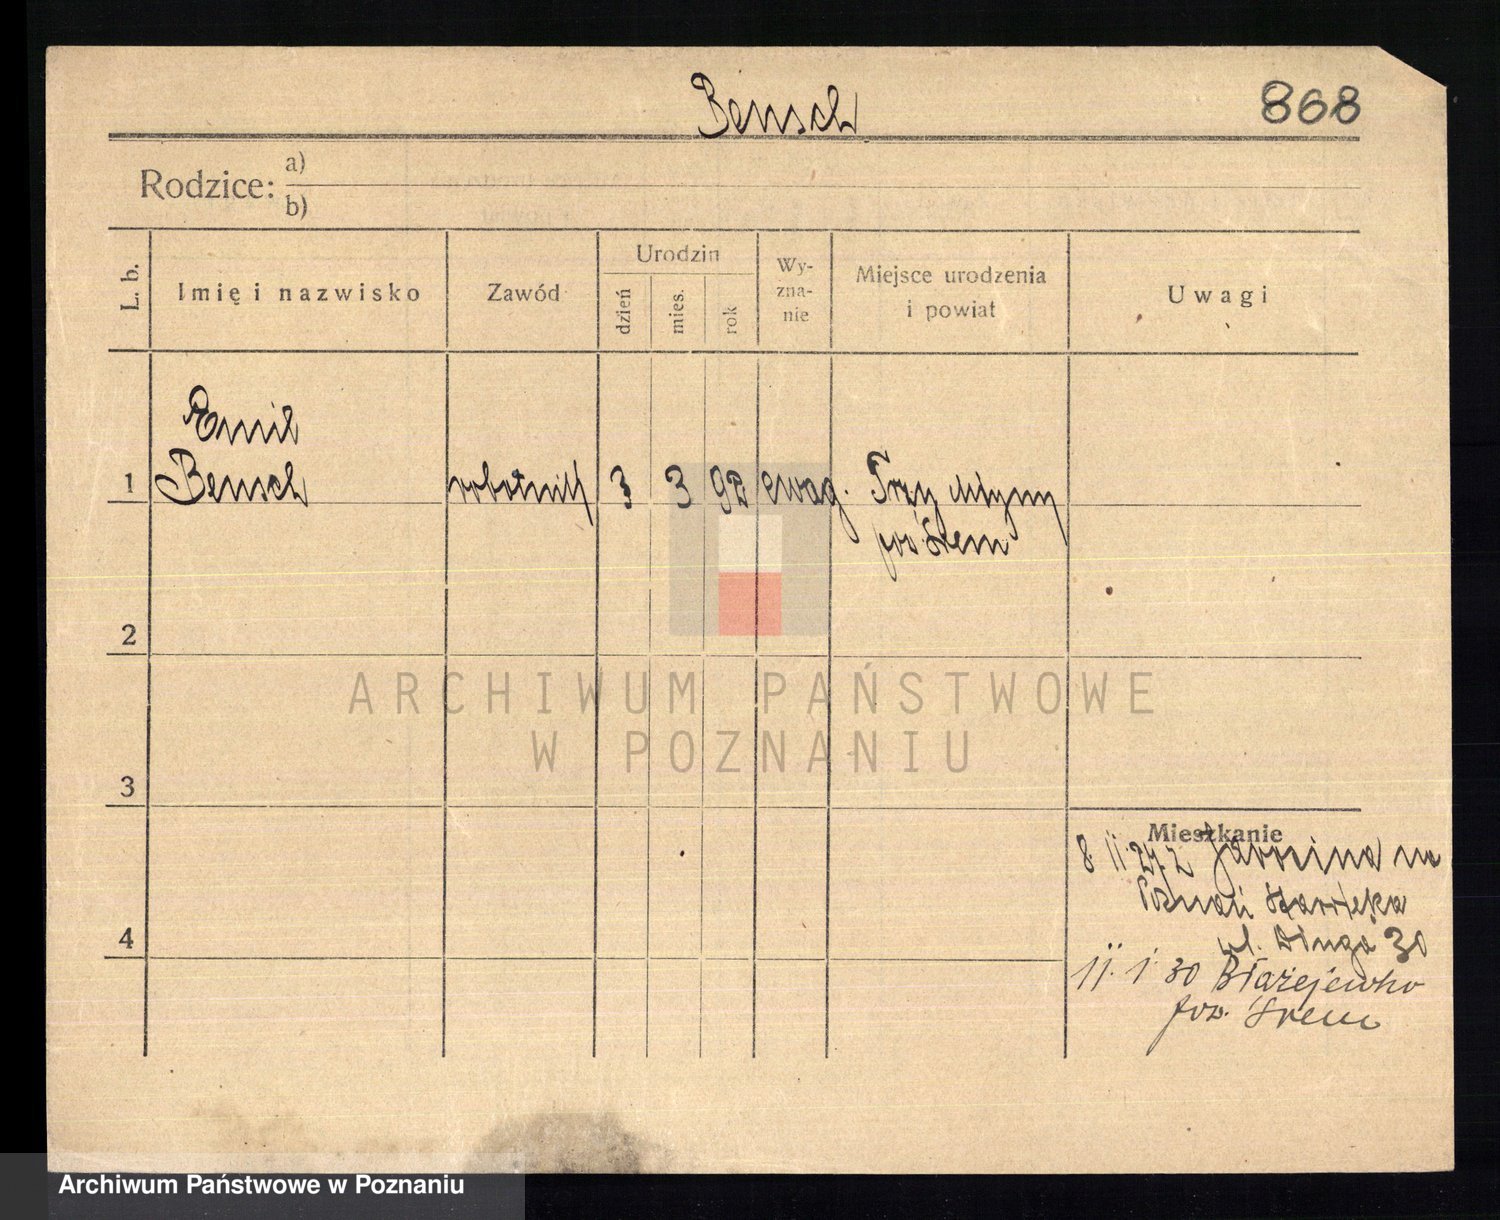 Bensch
868
Rodzice: a)
b)
L. b.
Imię i nazwisko
Zawód
Urodzin
dzień
mies.
rok
Wy-
zna-
nie
Miejsce urodzenia
i powiat
Uwagi
Emil
1 Bensch robotnik 3 3 92 ewag. Trzy Młyny
pow Śrem
2
3
4
Mieszkanie
8 11 27 z Jarocina na
Poznań Starołęka
ul. Długa 30
11. 1. 30 Błażejewko
pow. Śrem
ARCHIWUM PAŃSTWOWE
W POZNANIU
Archiwum Państwowe w Poznaniu